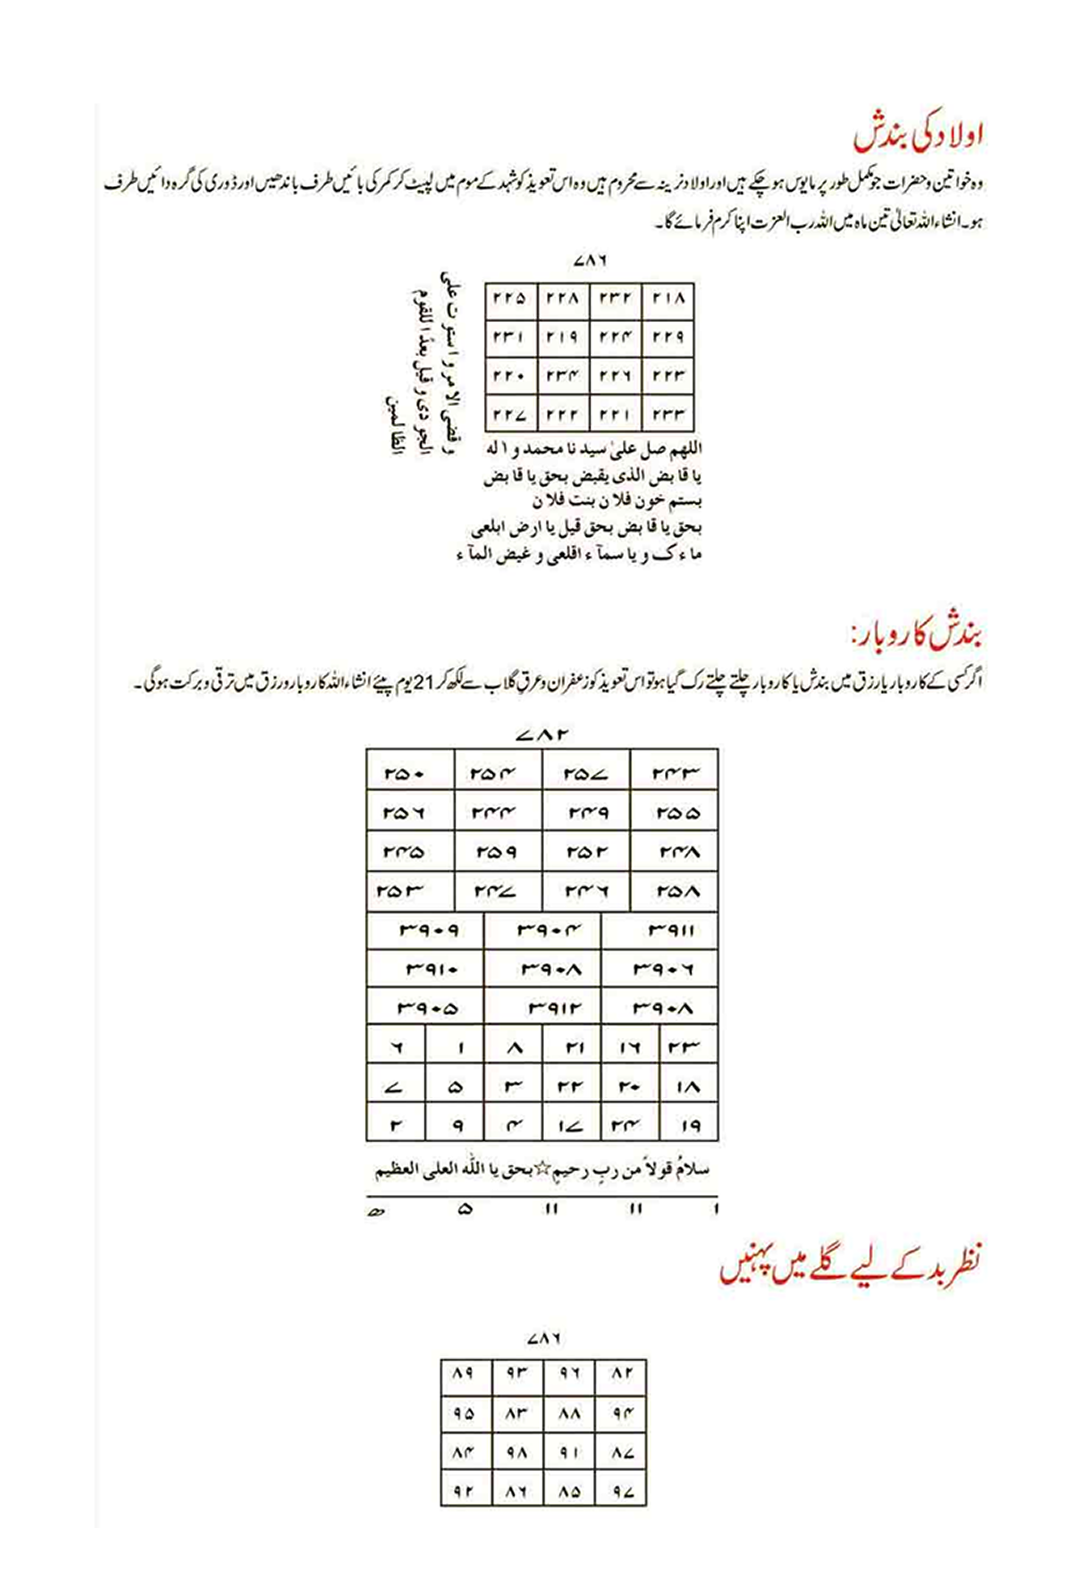 اولاد کی بندش
وہ خواتین و حضرات جو مکمل طور پر مایوس ہو چکے ہیں اور اولاد نرینہ سے محروم ہیں وہ اس تعویذ کو شہد کے موم میں لپیٹ کر کمر کی بائیں طرف باندھیں اور ڈوری کی گرہ دائیں طرف
ہو۔ انشاء اللہ تعالیٰ تین ماہ میں اللہ رب العزت اپنا کرم فرمائے گا۔
۷۸۶
۲۲۵ ۲۲۸ ۲۳۲ ۲۱۸
۲۳۱ ۲۱۹ ۲۲۴ ۲۲۹
۲۲۰ ۲۳۴ ۲۲۶ ۲۲۳
۲۲۷ ۲۲۲ ۲۲۱ ۲۳۳
اللھم صل علیٰ سید نا محمد و ا له
یا قا بض الذی یقبض بحق یا قا بض
بستم خون فلا ن بنت فلا ن
بحق یا قا بض بحق قیل یا ارض ابلعی
ما ءک و یا سمآ ء اقلعی و غیض المآ ء
و قضی الا مر و ا ستو ت علی
الجو دی و قیل بعدً ا للقوم
الظا لمین
بندش کاروبار:
اگر کسی کے کاروبار یا رزق میں بندش یا کاروبار چلتے چلتے رک گیا ہو تو اس تعویذ کو زعفران و عرق گلاب سے لکھ کر 21 یوم پیئے انشاء اللہ کاروبار و رزق میں ترقی و برکت ہوگی۔
۷۸۲
۲۵۰ ۲۵۴ ۲۵۷ ۲۴۳
۲۵۶ ۲۴۴ ۲۴۹ ۲۵۵
۲۴۵ ۲۵۹ ۲۵۲ ۲۴۸
۲۵۳ ۲۴۷ ۲۴۶ ۲۵۸
۳۹۰۹ ۳۹۰۴ ۳۹۱۱
۳۹۱۰ ۳۹۰۸ ۳۹۰۶
۳۹۰۵ ۳۹۱۲ ۳۹۰۸
۶ ۱ ۸ ۲۱ ۱۶ ۲۳
۷ ۵ ۳ ۲۲ ۲۰ ۱۸
۲ ۹ ۴ ۱۷ ۲۴ ۱۹
سلامُ قولاً من ربٍ رحیمٍ☆بحق یا اللّٰه العلی العظیم
ا ۱۱ ۱۱ ۵ ھ
نظر بد کے لیے گلے میں پہنیں
۷۸۶
۸۹ ۹۳ ۹۶ ۸۲
۹۵ ۸۳ ۸۸ ۹۴
۸۴ ۹۸ ۹۱ ۸۷
۹۲ ۸۶ ۸۵ ۹۷